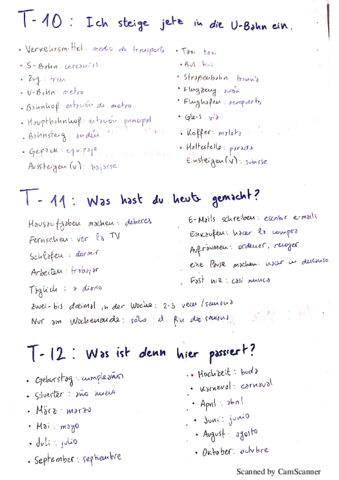 T-10 : Ich steige jetz in die U-Bahn ein.
• Verkehrsmittel : medio de transporte
• S-Bahn : cercanías
• Zug : tren
• U-Bahn : metro
• Bahnhof : estación de metro
• Hauptbahnhof : estación principal
• Bahnsteig : andén
• Gepäck : equipaje
Aussteigen (v) : bajarse
• Taxi : taxi
• Bus : bus
• Straßenbahn : tranvía
• Flugzeug : avión
• Flughafen : aeropuerto
• Gleis : vía
• Koffer : maleta
• Haltestelle : parada
Einsteigen (v) : subirse
T-11 : Was hast du heute gemacht?
Hausaufgaben machen : deberes
Fernsehen : ver la TV
Schlafen : dormir
Arbeiten : trabajar
Täglich : a diario
Zwei-bis dreimal in der Woche : 2-3 veces/semana
Nur am Wochenende : solo el fin de semana
E-Mails schreiben : escribir e-mails
Einkaufen : hacer la compra
Aufräumen : ordenar, recoger
eine Pause machen : hacer un descanso
Fast nie : casi nunca
T-12 : Was ist denn hier passiert?
• Geburtstag : cumpleaños
• Silvester : año nuevo
• März : marzo
• Mai : mayo
• Juli : julio
• September : septiembre
• Hochzeit : boda
• Karneval : carnaval
• April : abril
• Juni : junio
• August : agosto
• Oktober : octubre
Scanned by CamScanner